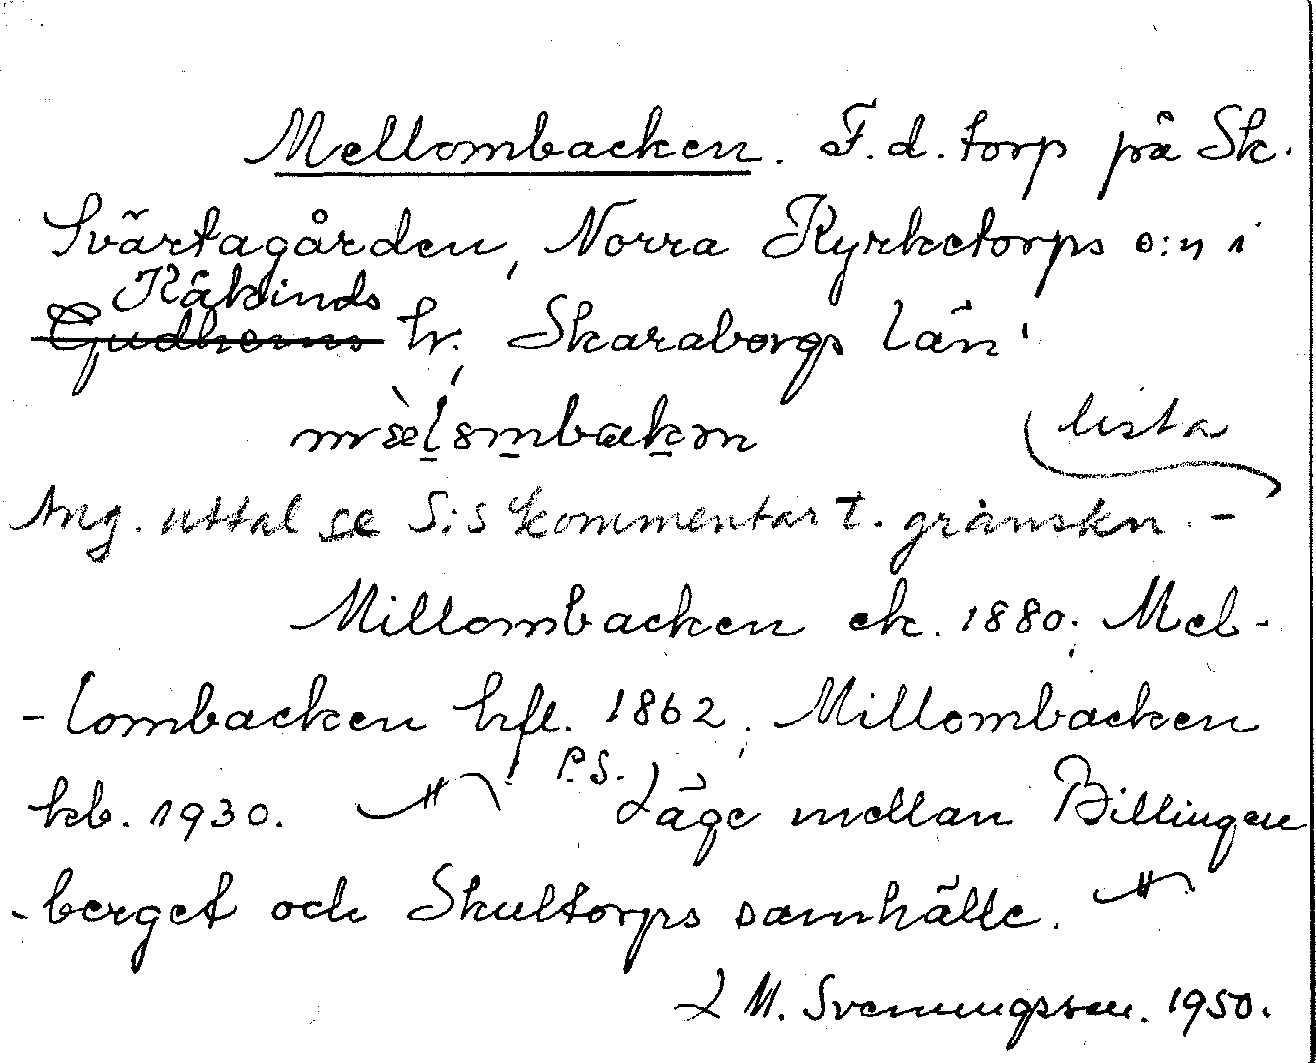 Mellombacken. F.d. torp på Sk.
Svärtagården, Norra Kyrketorps s:n i
Kåkinds
Gudhems hr, Skaraborgs län.
lista
Ang. uttal se S:s kommentar t. granskn. -
Millombacken ek. 1880; Mel-
-lombacken hfl. 1862; Millombacken
kb. 1930. P.S. Läge mellan Billingen
-berget och Skultorps samhälle.
L M. Svenungsson. 1950.